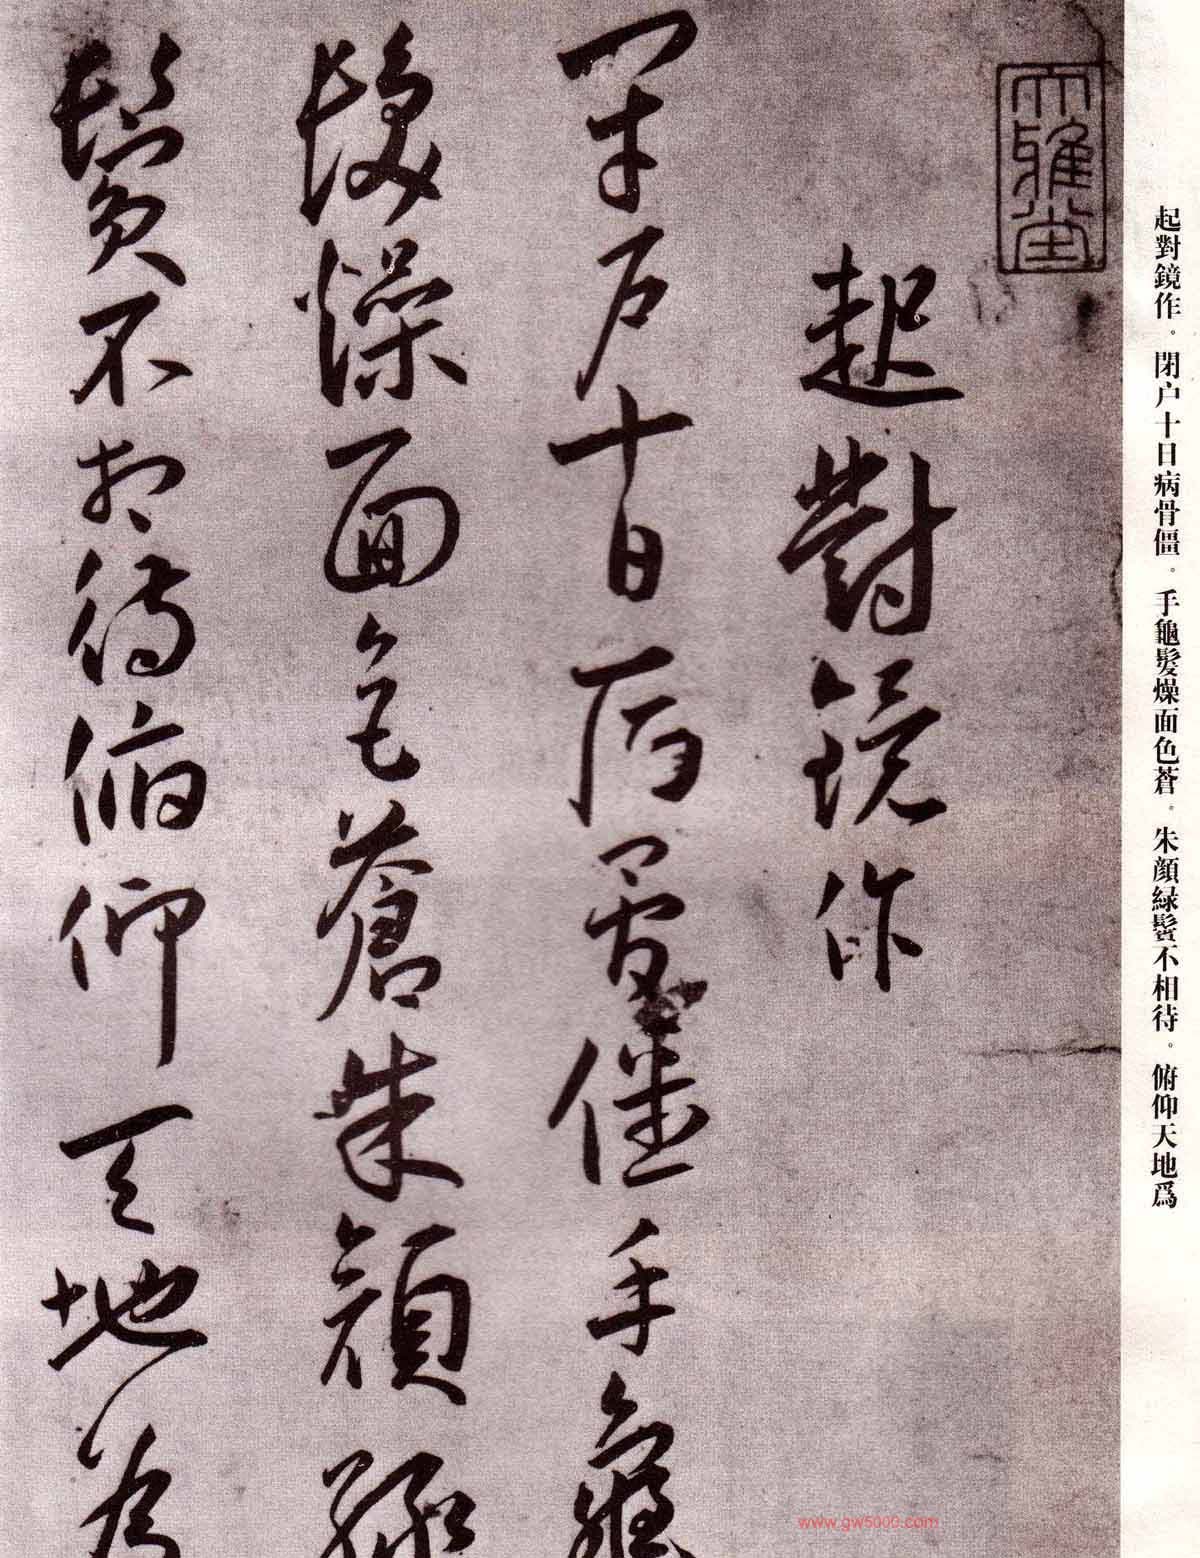 起對鏡作。閉户十日病骨僵。手龜髮燥面色蒼。朱顔緑鬢不相待。俯仰天地爲
大雅堂
起對鏡作
閉户十日病骨僵手龜
髮燥面色蒼朱顔緑
鬢不相待俯仰天地爲
www.gw5000.com